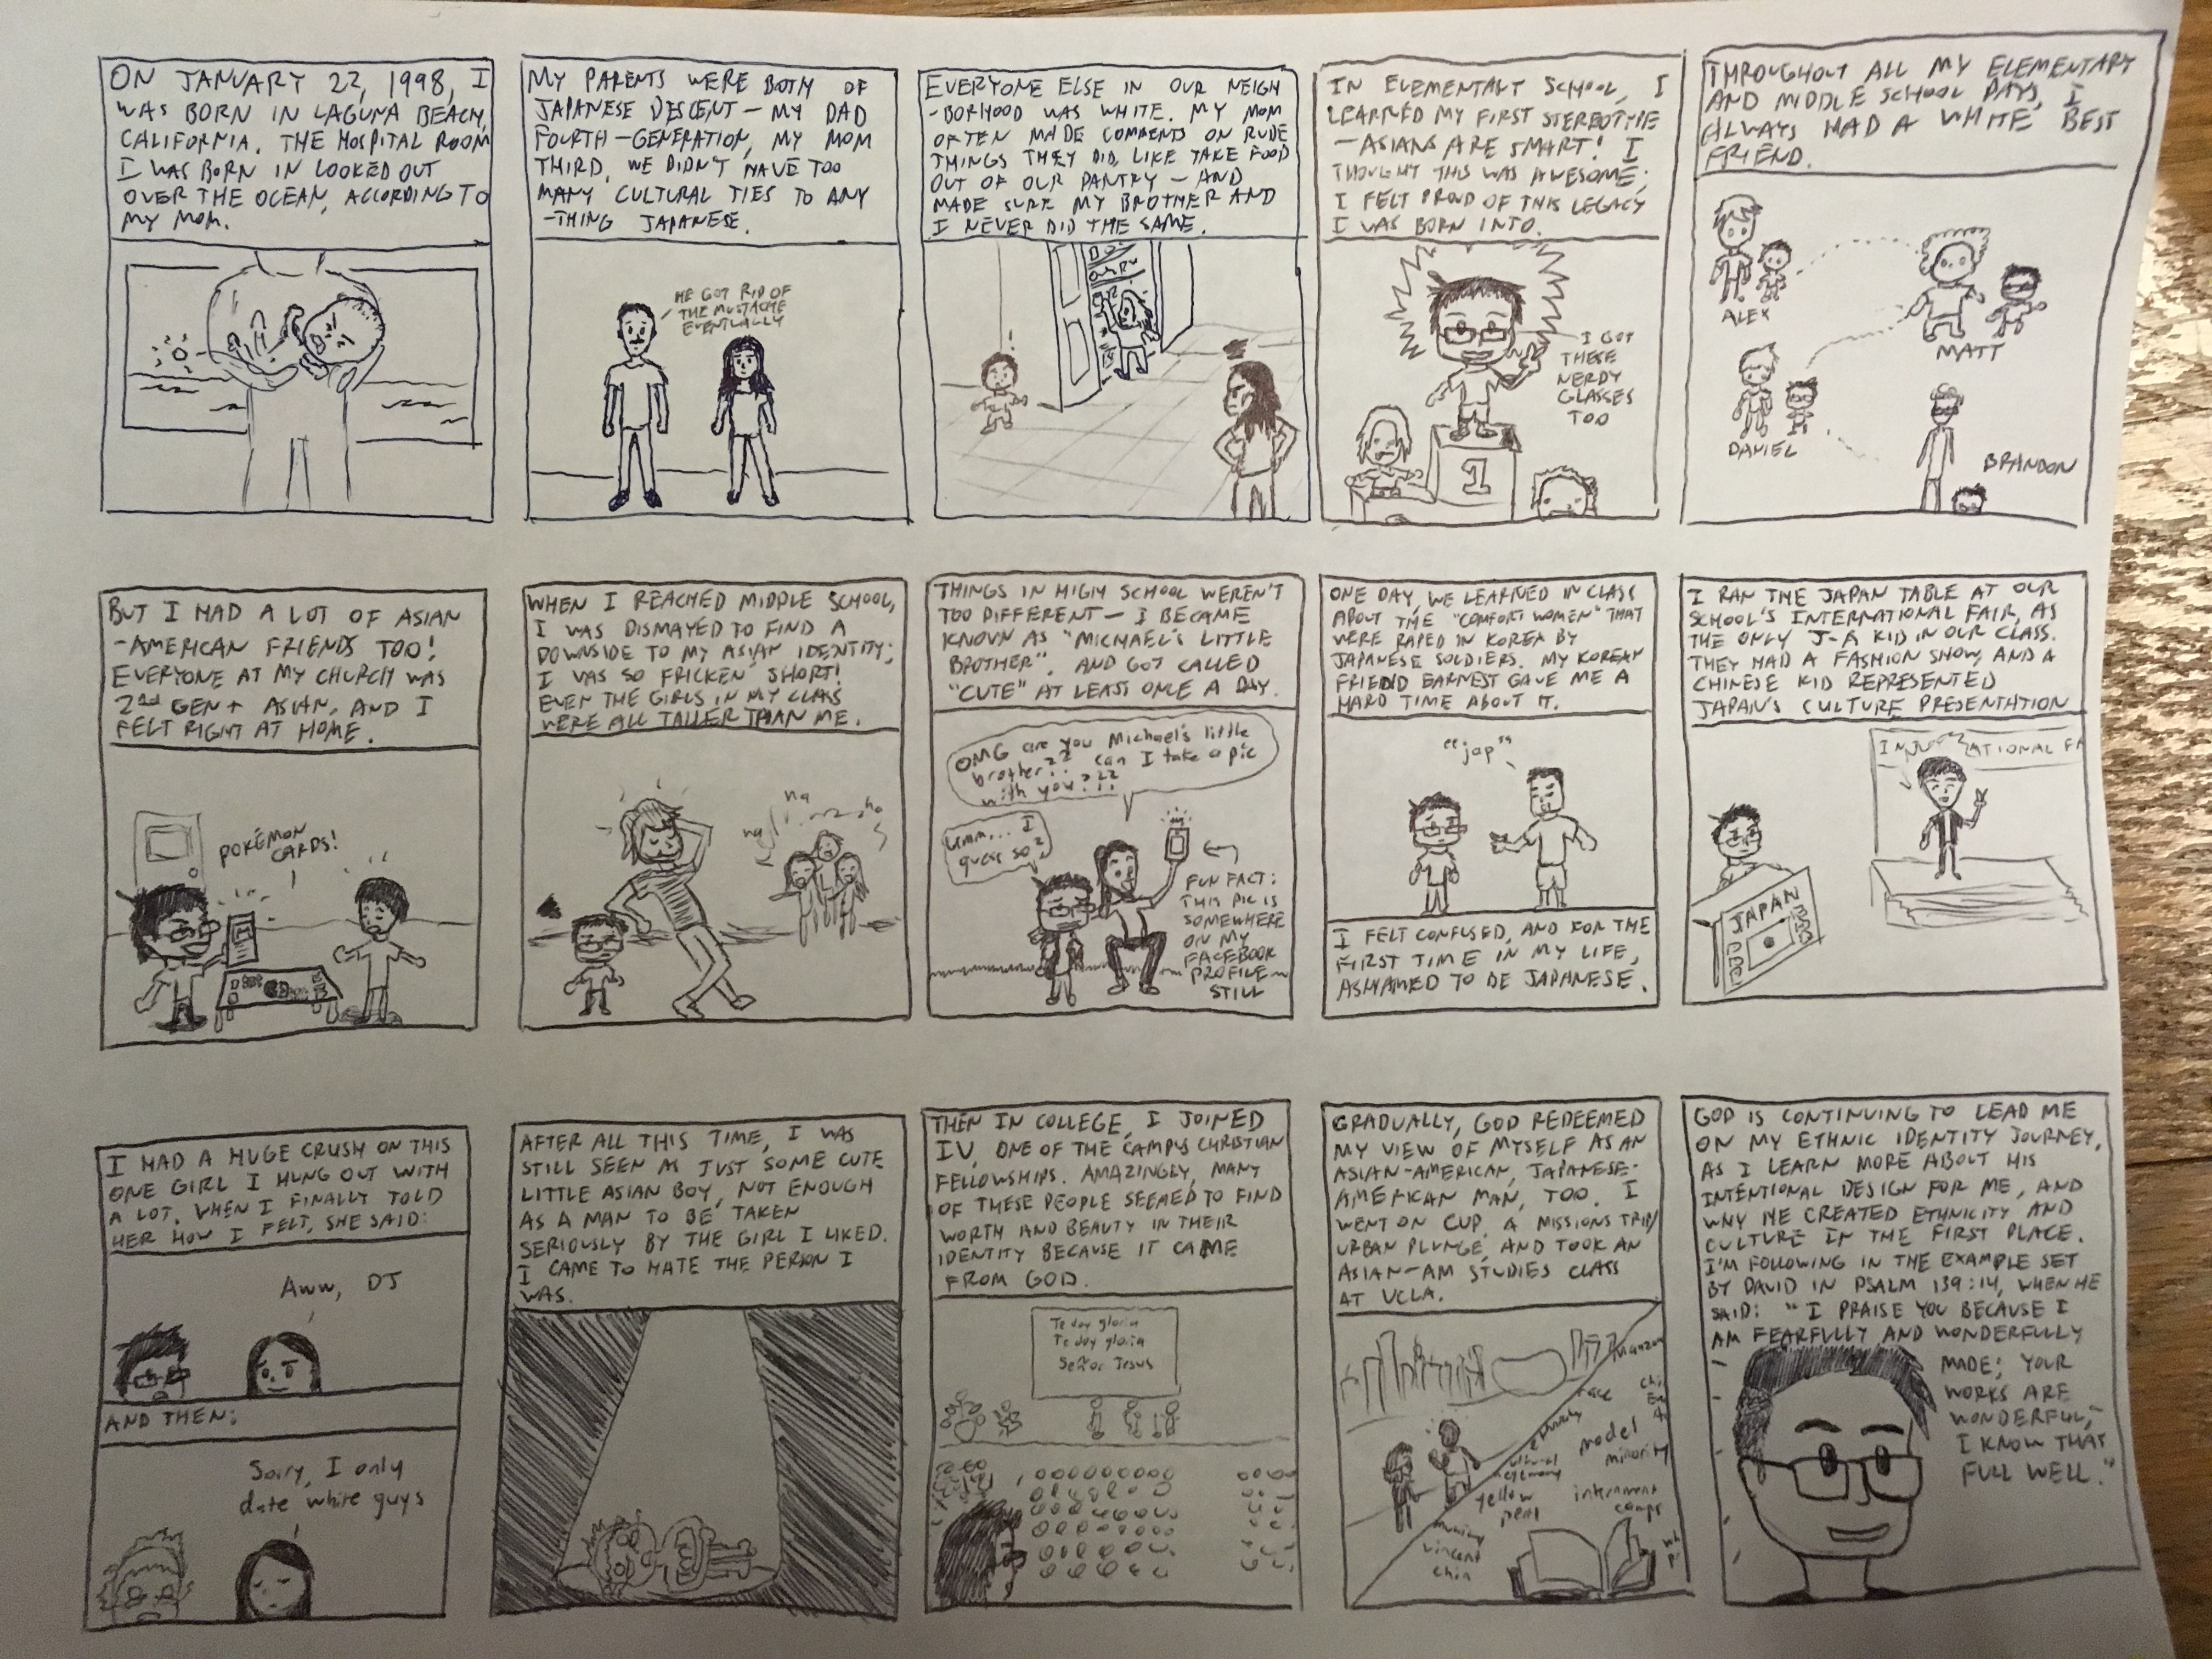 ON JANUARY 22, 1998, I
WAS BORN IN LAGUNA BEACH,
CALIFORNIA. THE HOSPITAL ROOM
I WAS BORN IN LOOKED OUT
OVER THE OCEAN, ACCORDING TO
MY MOM.
MY PARENTS WERE BOTH OF
JAPANESE DESCENT - MY DAD
FOURTH-GENERATION, MY MOM
THIRD. WE DIDN'T HAVE TOO
MANY CULTURAL TIES TO ANY
-THING JAPANESE.
HE GOT RID OF
THE MUSTACHE
EVENTUALLY
EVERYONE ELSE IN OUR NEIGH
-BORHOOD WAS WHITE. MY MOM
OFTEN MADE COMMENTS ON RUDE
THINGS THEY DID, LIKE TAKE FOOD
OUT OF OUR PANTRY - AND
MADE SURE MY BROTHER AND
I NEVER DID THE SAME.
IN ELEMENTARY SCHOOL, I
LEARNED MY FIRST STEREOTYPE
- ASIANS ARE SMART! I
THOUGHT THIS WAS AWESOME;
I FELT PROUD OF THIS LEGACY
I WAS BORN INTO.
I GOT
THESE
NERDY
GLASSES
TOO
1
THROUGHOUT ALL MY ELEMENTARY
AND MIDDLE SCHOOL DAYS, I
ALWAYS HAD A WHITE BEST
FRIEND.
ALEX
MATT
DANIEL
BRANDON
BUT I HAD A LOT OF ASIAN
-AMERICAN FRIENDS TOO!
EVERYONE AT MY CHURCH WAS
2nd GEN+ ASIAN, AND I
FELT RIGHT AT HOME.
POKÉMON
CARDS!
WHEN I REACHED MIDDLE SCHOOL,
I WAS DISMAYED TO FIND A
DOWNSIDE TO MY ASIAN IDENTITY:
I WAS SO FRICKEN SHORT!
EVEN THE GIRLS IN MY CLASS
WERE ALL TALLER THAN ME.
THINGS IN HIGH SCHOOL WEREN'T
TOO DIFFERENT - I BECAME
KNOWN AS "MICHAEL'S LITTLE
BROTHER", AND GOT CALLED
"CUTE" AT LEAST ONCE A DAY.
OMG are you Michael's little
brother?? can I take a pic
with you??!!
umm... I
guess so?
FUN FACT:
THIS PIC IS
SOMEWHERE
ON MY
FACEBOOK
PROFILE
STILL
ONE DAY, WE LEARNED IN CLASS
ABOUT THE "COMFORT WOMEN" THAT
WERE RAPED IN KOREA BY
JAPANESE SOLDIERS. MY KOREAN
FRIEND EARNEST GAVE ME A
HARD TIME ABOUT IT.
"jap"
I FELT CONFUSED, AND FOR THE
FIRST TIME IN MY LIFE,
ASHAMED TO BE JAPANESE.
I RAN THE JAPAN TABLE AT OUR
SCHOOL'S INTERNATIONAL FAIR, AS
THE ONLY J-A KID IN OUR CLASS.
THEY HAD A FASHION SHOW, AND A
CHINESE KID REPRESENTED
JAPAN'S CULTURE PRESENTATION
JAPAN
I HAD A HUGE CRUSH ON THIS
ONE GIRL I HUNG OUT WITH
A LOT. WHEN I FINALLY TOLD
HER HOW I FELT, SHE SAID:
Aww, DJ
AND THEN:
Sorry, I only
date white guys
AFTER ALL THIS TIME, I WAS
STILL SEEN AS JUST SOME CUTE
LITTLE ASIAN BOY, NOT ENOUGH
AS A MAN TO BE TAKEN
SERIOUSLY BY THE GIRL I LIKED.
I CAME TO HATE THE PERSON I
WAS.
THEN IN COLLEGE, I JOINED
IV, ONE OF THE CAMPUS CHRISTIAN
FELLOWSHIPS. AMAZINGLY, MANY
OF THESE PEOPLE SEEMED TO FIND
WORTH AND BEAUTY IN THEIR
IDENTITY BECAUSE IT CAME
FROM GOD.
Toda gloria
Toda gloria
Señor, Jesus
GRADUALLY, GOD REDEEMED
MY VIEW OF MYSELF AS AN
ASIAN-AMERICAN, JAPANESE-
AMERICAN MAN, TOO. I
WENT ON CUP, A MISSIONS TRIP/
URBAN PLUNGE, AND TOOK AN
ASIAN-AM STUDIES CLASS
AT UCLA.
race
model
minority
yellow
peril
internment
camps
vincent
chin
GOD IS CONTINUING TO LEAD ME
ON MY ETHNIC IDENTITY JOURNEY,
AS I LEARN MORE ABOUT HIS
INTENTIONAL DESIGN FOR ME, AND
WHY HE CREATED ETHNICITY AND
CULTURE IN THE FIRST PLACE.
I'M FOLLOWING IN THE EXAMPLE SET
BY DAVID IN PSALM 139:14, WHEN HE
SAID: "I PRAISE YOU BECAUSE I
AM FEARFULLY AND WONDERFULLY
MADE; YOUR
WORKS ARE
WONDERFUL,
I KNOW THAT
FULL WELL."